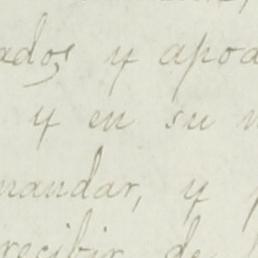 ados y apod
y en su
mandar, y
recibir de